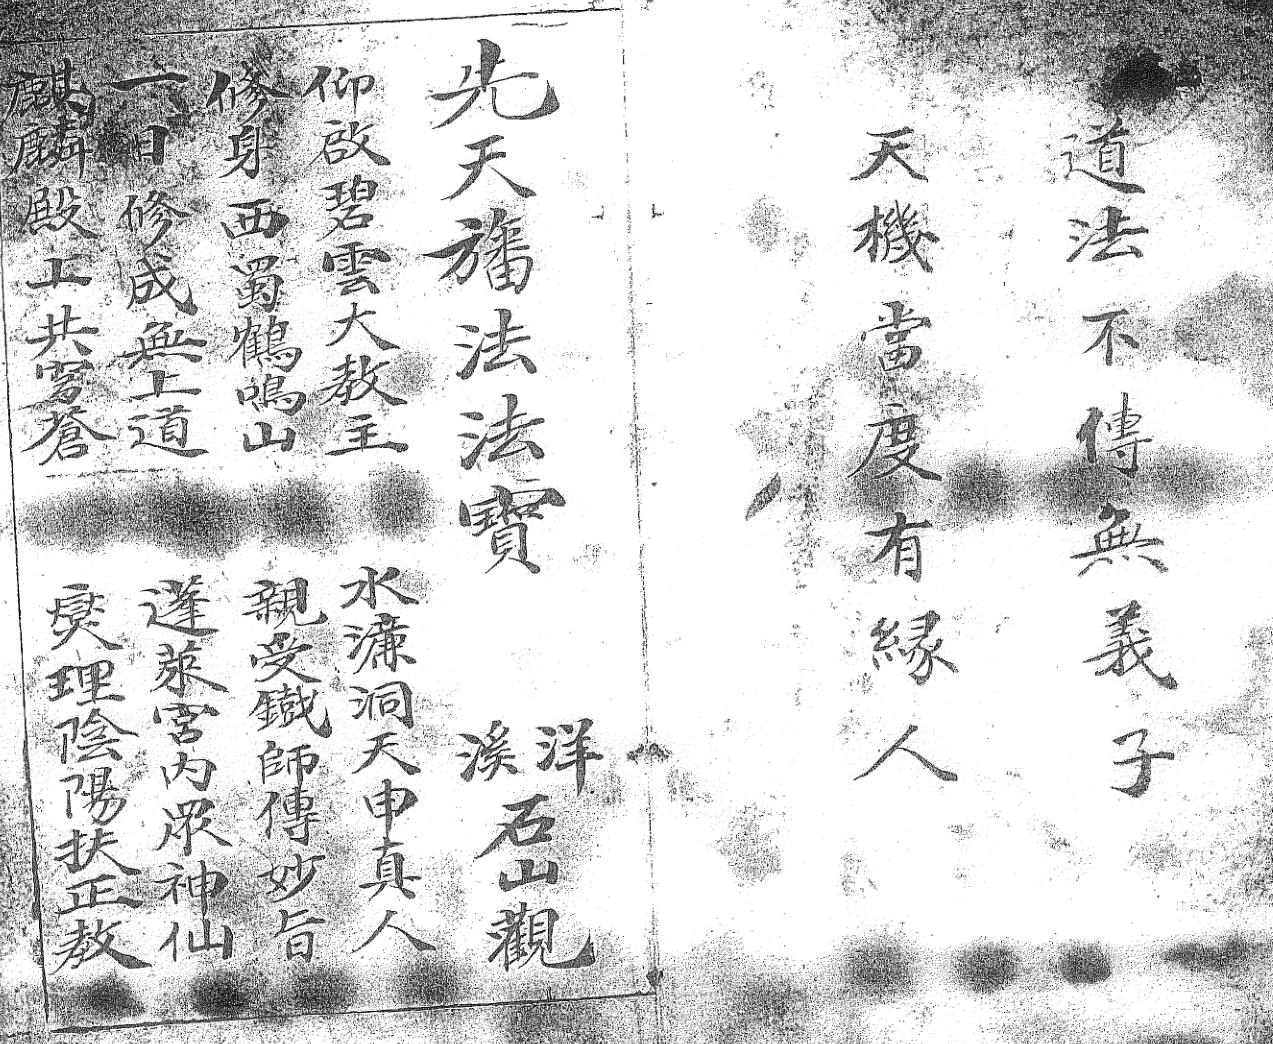 道法不傳無義子
天機當度有緣人
先天旛法法寶 洋溪石山觀
仰啟碧雲大教主 水濂洞天申真人
修身西蜀鶴鳴山 親受鐵師傳妙旨
一日修成無上道 蓬萊宮内眾神仙
麒麟殿上共穹蒼 爕理陰陽扶正教